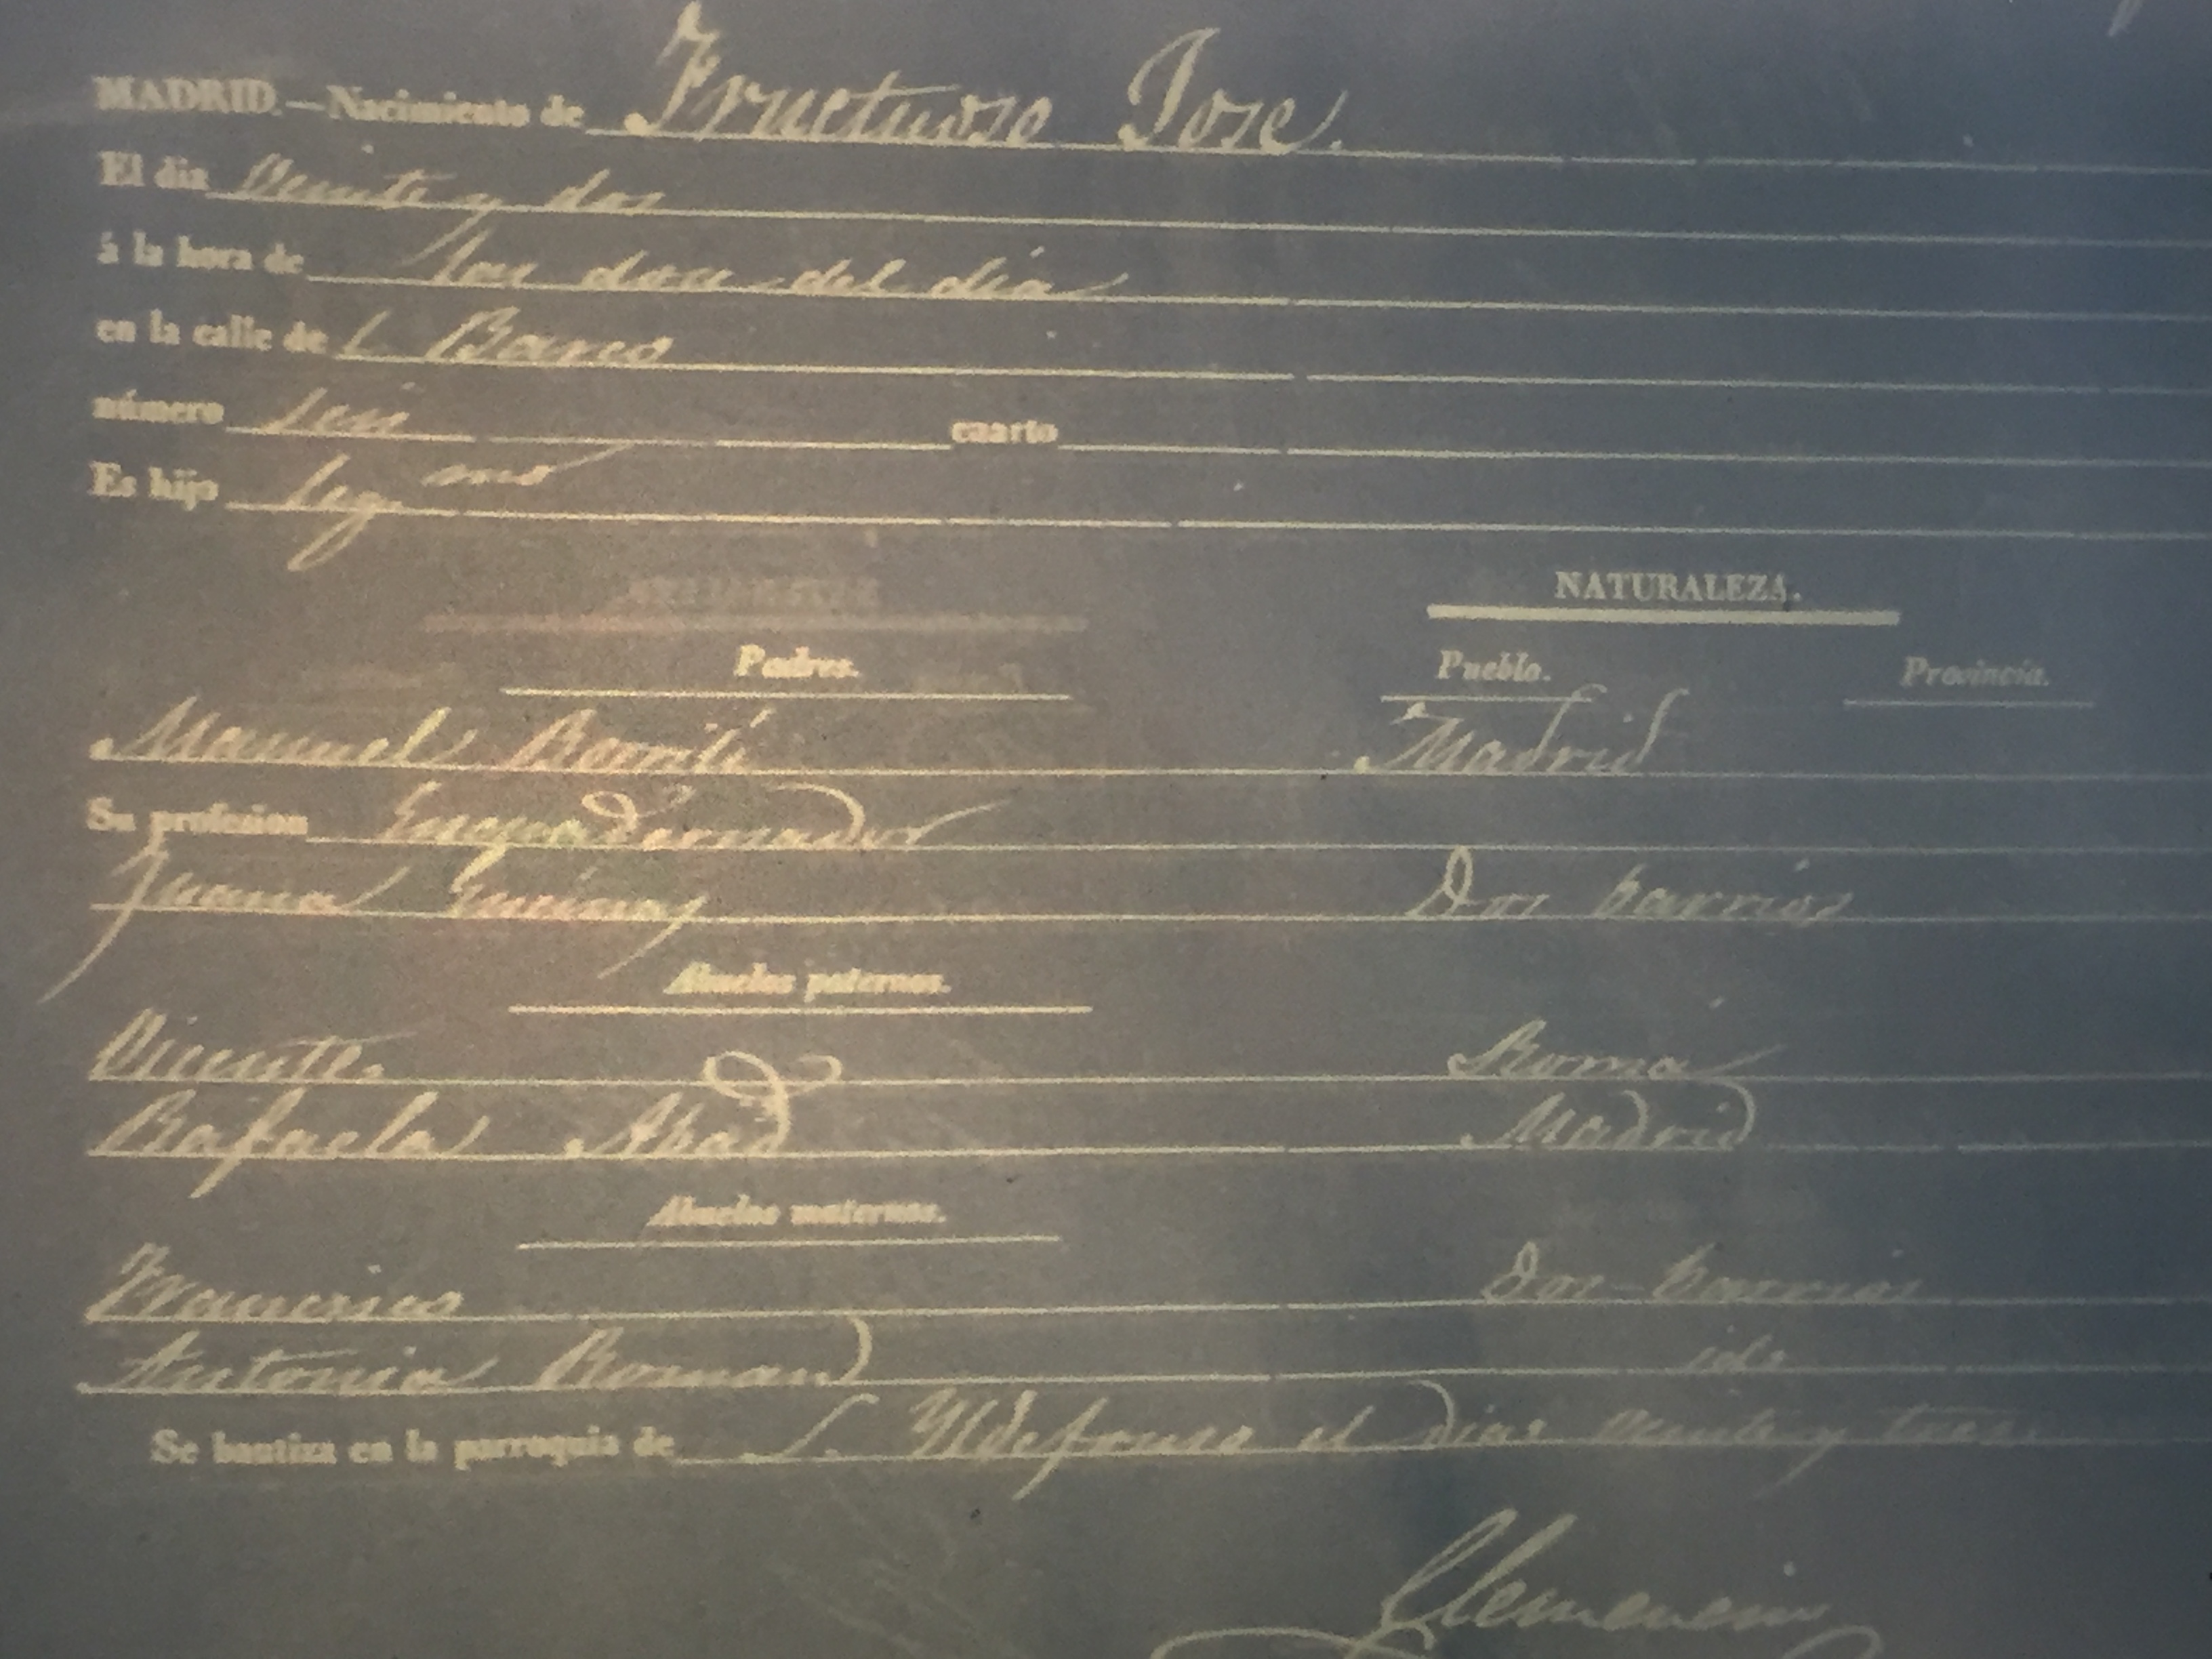 MADRID.—Nacimiento de Fructuoso Jose.
El dia Veinte y dos
á la hora de las doce del día
en la calle de l Barco
número seis cuarto
Es hijo leg.mo
NATURALEZA.
Padres. Pueblo. Provincia.
Manuel Madrid
Su profesion Encuadernador
Juana Dos barrios
Abuelos paternos.
Vicente Roma
Rafaela Abad Madrid
Abuelos maternos.
Francisco Dos-barrios
Antonia Roman id.
Se bautiza en la parroquia de S. Yldefonso el dia veinte y tres.